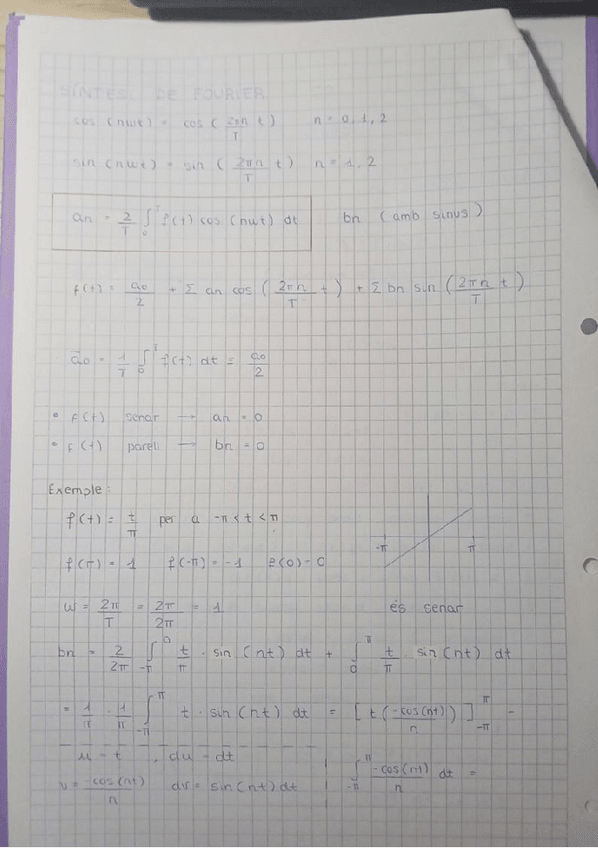 SÍNTESI DE FOURIER
cos (nωt) = cos ( 2πn/T t) n = 0, 1, 2
sin (nωt) = sin ( 2πn/T t) n = 1, 2
an = 2/T ∫₀ᵀ f(t) cos (nωt) dt bn (amb sinus)
f(t) = a₀/2 + Σ an cos ( 2πn/T t ) + Σ bn sin ( 2πn/T t )
ā₀ = 1/T ∫₀ᵀ f(t) dt = a₀/2
• f(t) senar → an = 0
• f(t) parell → bn = 0
Exemple:
f(t) = t/π per a -π < t < π
-π π
f(π) = 1 f(-π) = -1 f(0) = 0
ω = 2π/T = 2π/2π = 1 és senar
bn = 2/2π ∫₋π⁰ t/π · sin (nt) dt + ∫₀^π t/π · sin (nt) dt
= 1/π · 1/π ∫₋π^π t · sin (nt) dt = [ t ( -cos(nt)/n ) ]₋π^π -
u = t , du = dt
v = -cos(nt)/n dv = sin(nt) dt ∫₋π^π -cos(nt)/n dt =